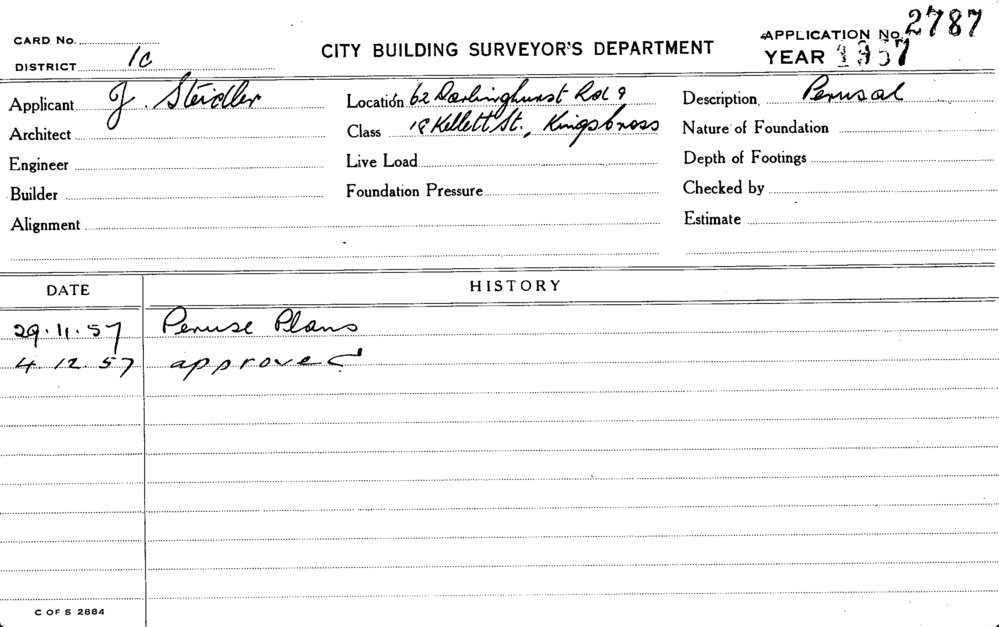 CARD No.
CITY BUILDING SURVEYOR'S DEPARTMENT
APPLICATION No. 2787
DISTRICT 1c
YEAR 1957
Applicant J. Steidler
Location 62 Darlinghurst Rd &
Description Perusal
Architect
Class 18 Kellett St., Kings Cross
Nature of Foundation
Engineer
Live Load
Depth of Footings
Builder
Foundation Pressure
Checked by
Alignment
Estimate
DATE HISTORY
29.11.57 Peruse Plans
4.12.57 approved
C OF S 2884